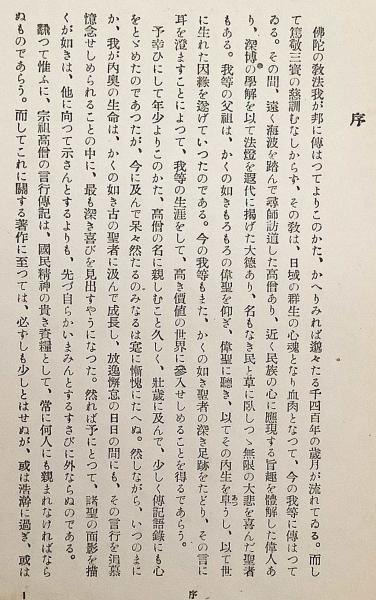 序
佛陀の敎法我が邦に傳はつてよりこのかた、かへりみれば邈々たる千四百年の歲月が流れてゐる。而し
て篤敬三寳の慈訓むなしからず、その敎は、日域の群生の心魂となり血肉となつて、今の我等に傳はつて
ゐる。その間、遠く海波を踏んで尋師訪道した高僧あり、近く民族の心に應現する旨趣を體解した偉人あ
り、深博の學解を以て法燈を遐代に揭げた大德あり、名もなき民と草に臥しつゝ無限の大悲を喜んだ聖者
もある。我等の父祖は、かくの如きもろもろの偉聖を仰ぎ、偉聖に聽き、以てその內生を卓うし、以て世
に生れた因緣を遂げていつたのである。今の我等もまた、かくの如き聖者の深き足跡をたどり、その言に
耳を澄ますことによつて、我等の生涯をして、高き價値の世界に參入せしめることを得るであらう。
予幸ひにして年少よりこのかた、高僧の名に親しむこと久しく、壯歲に及んで、少しく傳記語錄にも心
をとゞめたのであつたが、今に及んで呆々然たるのみなるは寔に慚愧にたへぬ。然しながら、いつのまに
か、我が內奧の生命は、かくの如き古の聖者に汲んで成長し、放逸懈怠の日日の間にも、その言行を追慕
憶念せしめられることの中に、最も深き喜びを見出すやうになつた。然れば予にとつて、諸聖の面影を描
くが如きは、他に向つて示さんとするよりも、先づ自らかいまみんとするすさびに外ならぬのである。
飜つて惟ふに、宗祖高僧の言行傳記は、國民精神の貴き資糧として、常に何人にも親まれなければなら
ぬものであらう。而してこれに關する著作に至つては、必ずしも少しとはせぬが、或は浩瀚に過ぎ、或は
序
1